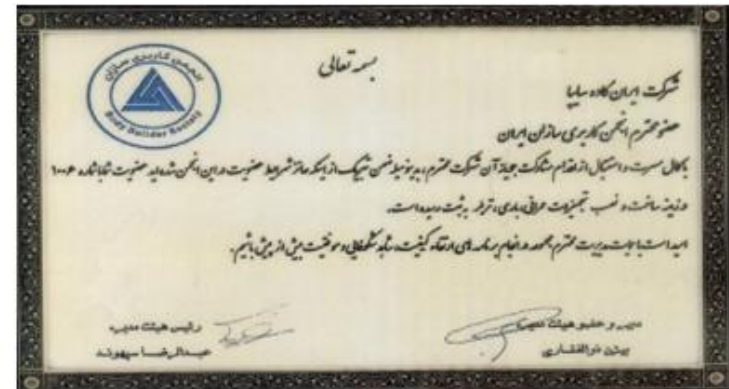 بسمه تعالی
انجمن کاربری سازان
Body Builder Society
شرکت ایران کاوه سایپا
عضو محترم انجمن کاربری سازان ایران
با کمال مسرت و استقبال از اقدام مشارکت جویانه آن شرکت محترم، بدینوسیله ضمن تبریک از اینکه حائز شرایط عضویت در این انجمن شده اید عضویت شما با شماره ۱۰۰۶
در زمینه ساخت و نصب تجهیزات عمرانی، باری، تریلر به ثبت رسیده است.
امید است با عنایت مدیریت محترم مجموعه در انجام برنامه های ارتقاء کیفیت، شاهد شکوفایی و موفقیت بیش از پیش باشیم.
دبیر و عضو هیئت مدیره
بیژن ذوالفقاری
رئیس هیئت مدیره
عبدالرضا سپهوند